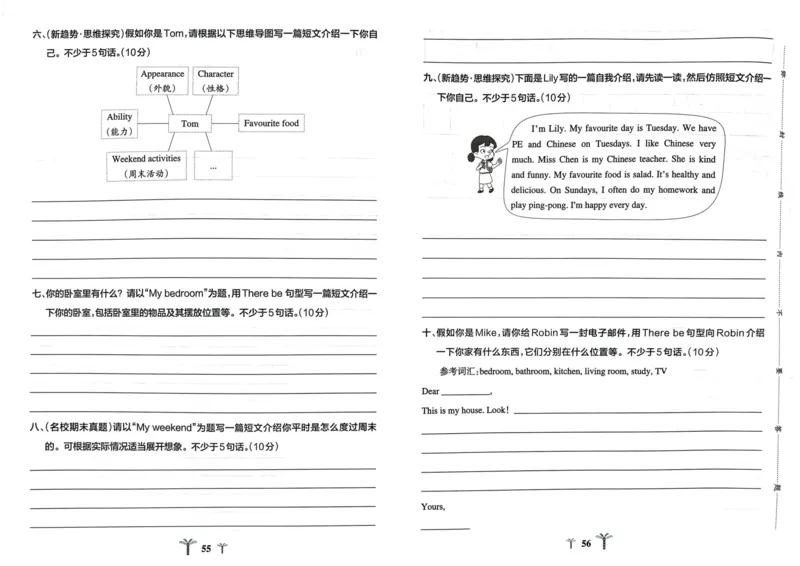 六、(新趋势·思维探究)假如你是Tom,请根据以下思维导图写一篇短文介绍一下你自
己。不少于5句话。(10分)
Appearance
(外貌)
Character
(性格)
Ability
(能力)
Tom
Favourite food
Weekend activities
(周末活动)
...
七、你的卧室里有什么? 请以“My bedroom”为题,用There be 句型写一篇短文介绍一
下你的卧室,包括卧室里的物品及其摆放位置等。不少于5句话。(10分)
八、(名校期末真题)请以“My weekend”为题写一篇短文介绍你平时是怎么度过周末
的。可根据实际情况适当展开想象。不少于5句话。(10分)
55
九、(新趋势·思维探究)下面是Lily写的一篇自我介绍,请先读一读,然后仿照短文介绍一
下你自己。不少于5句话。(10分)
I'm Lily. My favourite day is Tuesday. We have
PE and Chinese on Tuesdays. I like Chinese very
much. Miss Chen is my Chinese teacher. She is kind
and funny. My favourite food is salad. It's healthy and
delicious. On Sundays, I often do my homework and
play ping-pong. I'm happy every day.
十、假如你是Mike,请你给Robin写一封电子邮件,用There be句型向Robin介绍
一下你家有什么东西,它们分别在什么位置等。不少于5句话。(10分)
参考词汇:bedroom, bathroom, kitchen, living room, study, TV
Dear ,
This is my house. Look!
Yours,
56
密
封
线
内
不
要
答
题